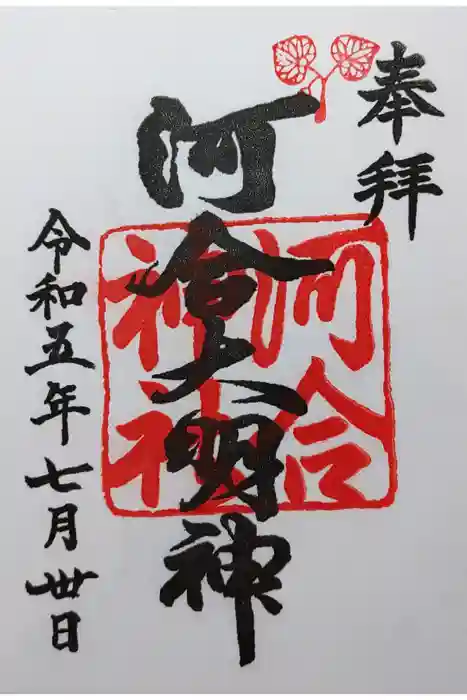 奉拝
河合大明神
河合
神
令和五年七月卅日